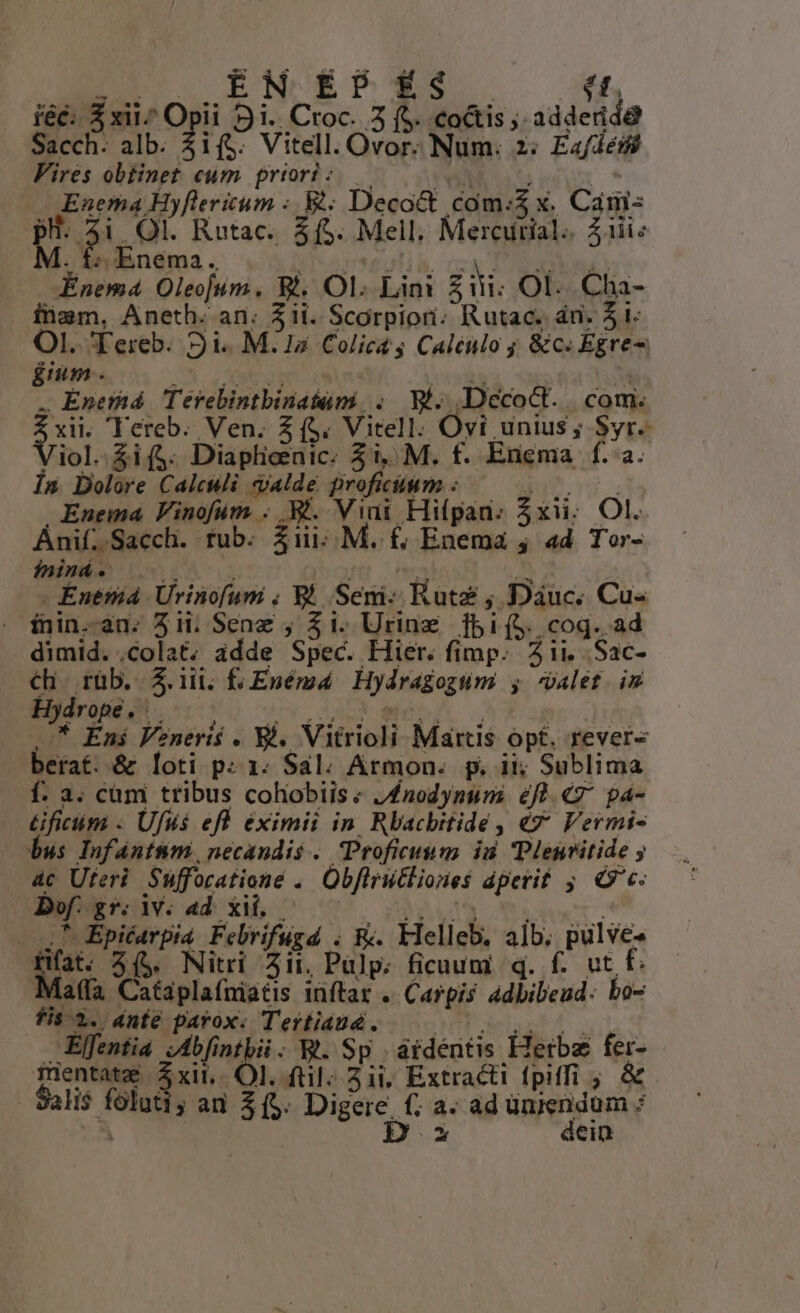 EN EP ES
réc: ℥xii. Opii ℈i. Croc. ʒſs. coctis; addendo
Sacch. alb. ℥iſs. Vitell. Ovor. Num. 2: Eaſdem
Vires obtinet cum priori:
Enema Hyſtericum: ℞. Decoct com. ℥x. Cam-
ph. ʒi Ol. Rutac. ℥ſs. Mell. Mercurial. ℥iii.
M. f. Enema.
Enema Oleoſum. ℞. Ol. Lini ℥iii. Ol. Cha-
mæm. Aneth. an. ℥ii. Scorpion. Rutac. an. ℥i.
Ol. Tereb. ℈i. M. In Colica; Calculo; &c. Egre-
gium.
Enema Terebinthinatum: ℞. Decoct. com.
℥xii. Tereb. Ven. ℥ſs. Vitell. Ovi unius; Syr.
Viol. ℥iſs. Diaphœnic. ℥i. M. f. Enema ſ. a.
In Dolore Calculi valde proficuum:
Enema Vinoſum. ℞. Vini Hiſpan. ℥xii. Ol.
Aniſ. Sacch. rub. ℥iii. M. f. Enema, ad Tor-
mina.
Enema Urinoſum. ℞ Sem. Rutæ, Dauc. Cu-
min. an. ʒii. Senæ, ℥i. Urinæ ℔iſs. coq. ad
dimid. colat. adde Spec. Hier. ſimp. ℥ii. Sac-
ch rub. ℥.iii. f. Enema Hydragogum; valet in
Hydrope.
* Ens Veneris. ℞. Vitrioli Martis opt. rever-
berat. & loti p. 1. Sal. Armon. p. ii. Sublima
ſ. a. cum tribus cohobiis: Anodynum eſt & pa-
cificum. Uſus eſt eximii in Rhachitide, & Vermi-
bus Infantum necandis. Proficuum in Pleuritide;
ac Uteri Suffocatione. Obſtructiones aperit; &c:
Doſ. gr. iv. ad xii.
* Epicarpia Febrifuga. ℞. Helleb. alb. pulve-
riſat. ʒſs. Nitri ʒii. Pulp. ficuum q. ſ. ut f.
Maſſa Cataplaſmatis inſtar. Carpis adhibeud. ho-
ris 2. ante parox. Tertianæ.
Eſſentia Abſinthii. ℞. Sp. ardentis Herbæ fer-
mentatæ ℥xii. Ol. ſtil. ʒii. Extracti ſpiſſi, &
Salis ſoluti, an ℥ſs. Digere ſ. a. ad uniendum:
D 2 dein